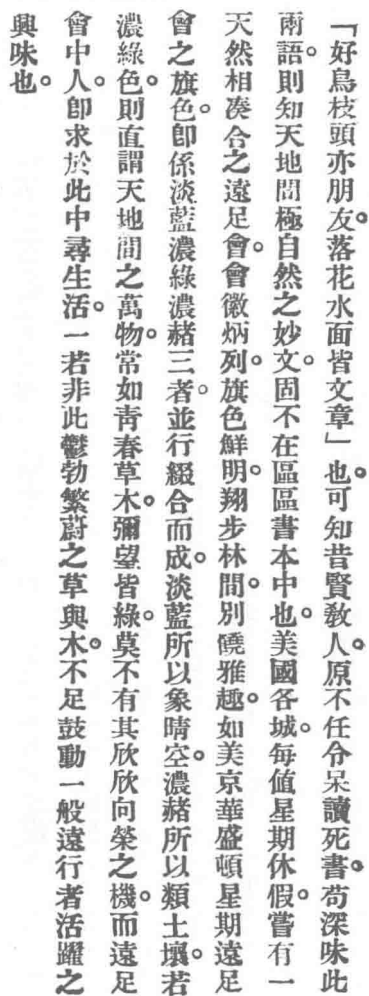 「好鳥枝頭亦朋友。落花水面皆文章」也。可知昔賢敎人。原不任令呆讀死書。苟深味此
兩語。則知天地間極自然之妙文。固不在區區書本中也。美國各城。每值星期休假。嘗有一
天然相湊合之遠足會。會徽炳列。旗色鮮明。翔步林間。別饒雅趣。如美京華盛頓星期遠足
會之旗色。卽係淡藍濃綠濃赭三者。並行綴合而成。淡藍所以象晴空。濃赭所以類土壤。若
濃綠色。則直謂天地間之萬物。常如靑春草木。彌望皆綠。莫不有其欣欣向榮之機。而遠足
會中人。卽求於此中尋生活。一若非此鬱勃繁蔚之草與木。不足鼓動一般遠行者活躍之
興味也。